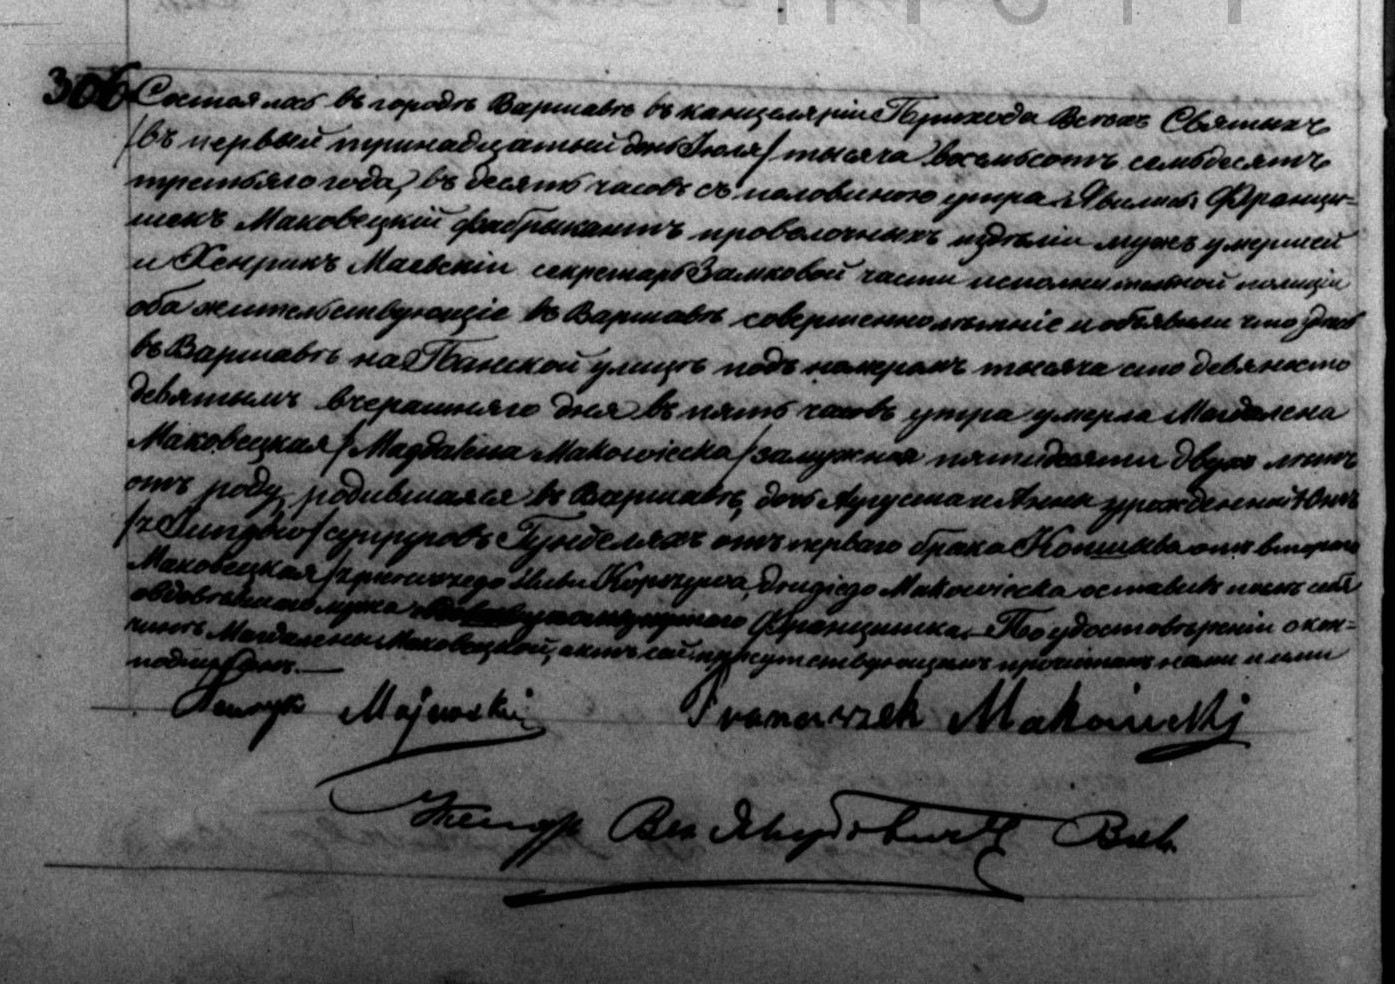 306 Состоялось въ городѣ Варшавѣ въ канцеляріи Прихода Всѣхъ Святыхъ
/въ первый тринадцатый день Іюля/ тысяча восемьсотъ семьдесятъ
третьяго года, въ десять часовъ съ половиною утра. Явились Францы-
шекъ Маковецкій фабрыкантъ проволочныхъ издѣлій мужъ умершей
и Хенрикъ Маевскій секретарь Замковой части исполнительной полиціи
оба жительствующіе въ Варшавѣ совершеннолѣтніе и объявили что здѣсь
въ Варшавѣ на Панской улицѣ подъ номеромъ тысяча сто девяносто
девятымъ вчерашняго дня въ пять часовъ утра умерла Магдалена
Маковецкая /Magdalena Makowiecka/ замужная пятидесяти двухъ лѣтъ
отъ роду, родившаяся въ Варшавѣ, дочь Августа и Анны урожденной
супруговъ отъ перваго брака отъ втораго
Маковецкая drugiego Makowiecka оставивъ послѣ себя
овдовѣвшаго мужа Францишка. По удостовѣреніи о кон-
чинѣ Магдалены Маковецкой, актъ сей присутствующимъ прочитанъ нами и ими
подписанъ.
Henryk Majewski Franciszek Makowiecki